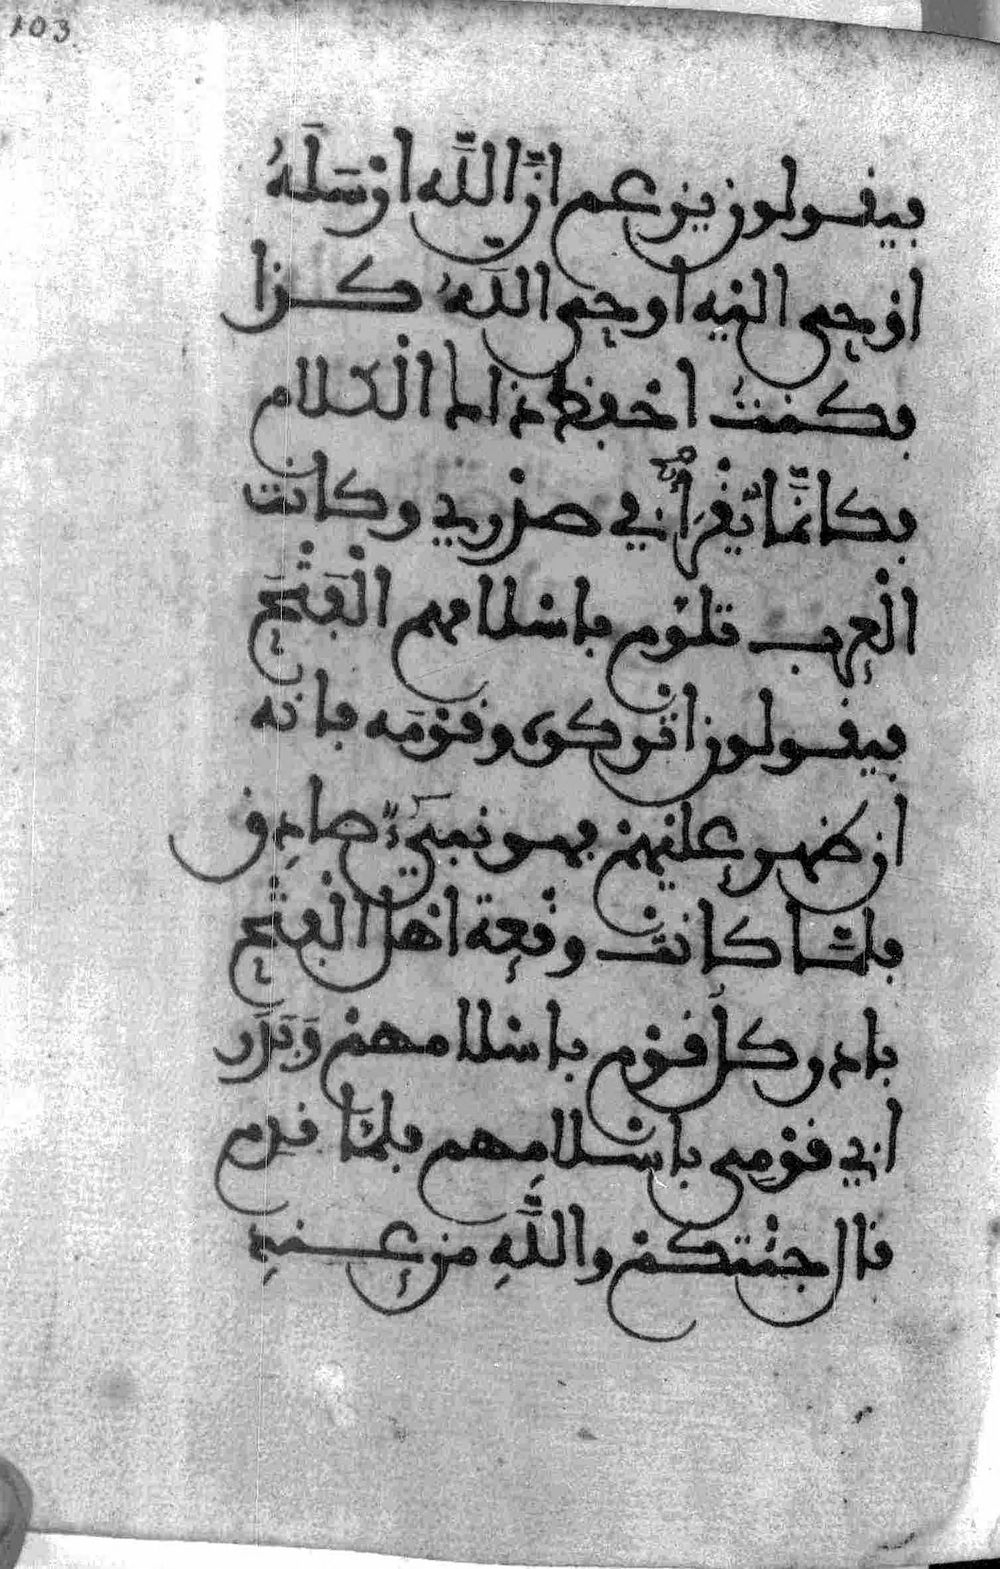 103
فيقولون يزعم أنَّ اللَّه أرْسَلَهُ
أوْحى إليْه أو أوحى اللَّهُ كذا
فكنتُ أحْفظ ذلك الْكلام
فكأنَّما يُقْرَأُ في صدْري وكانت
الْعرب تلوّم بإسْلامهم الْفَتْحَ
فيقولون اتركوه وقوْمَه فإنه
إن ظهر عليْهمْ فهو نبيٌّ صادِق
فلمّا كانتْ وقْعة أهْل الْفتْح
بادر كلُّ قوْم بإسْلامهمْ وَبَدَر
أبي قوْمِي بإسْلامِهم فلمَّا قدِم
قال جئْتكمْ واللَّهِ من عِنْدِ